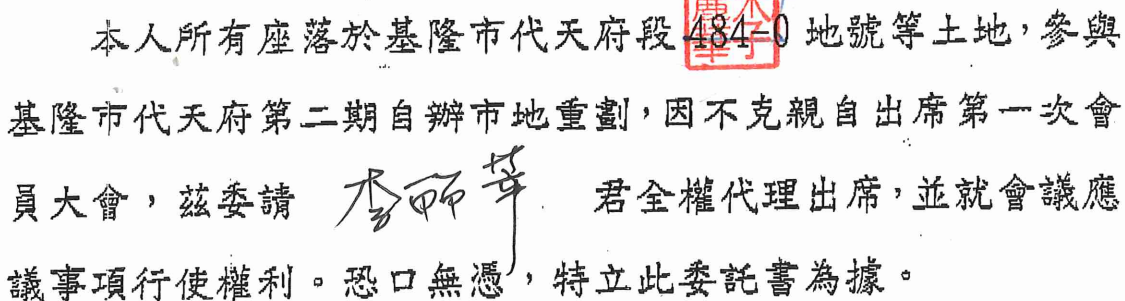 本人所有座落於基隆市代天府段 484-0 地號等土地，參與
基隆市代天府第二期自辦市地重劃，因不克親自出席第一次會
員大會，茲委請 李丽華 君全權代理出席，並就會議應
議事項行使權利。恐口無憑，特立此委託書為據。